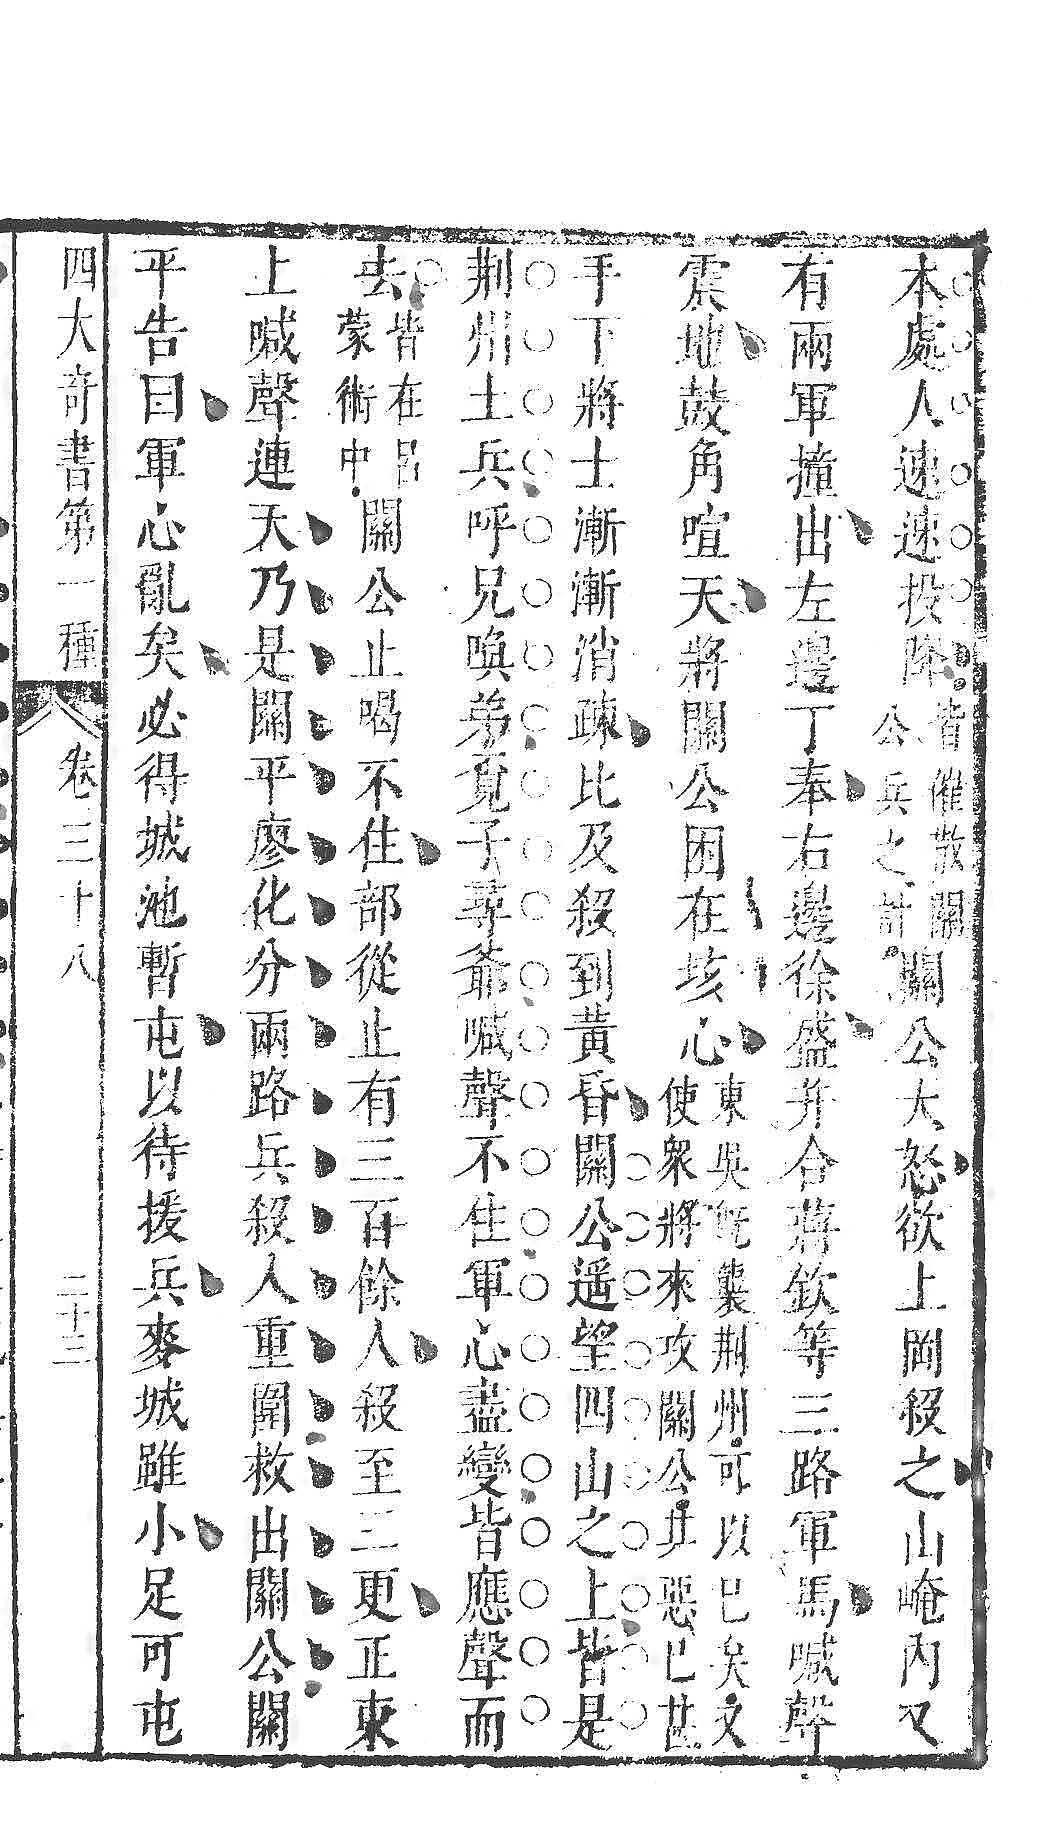 本處人速速投降皆催散關公兵之計關公大怒欲上岡殺之山崦内又
有兩軍撞出左邊丁奉右邊徐盛并合蔣欽等三路軍馬喊聲
震地鼓角喧天將關公困在垓心東吳旣襲荆州可以已矣又使衆將來攻關公其惡已甚
手下將士漸漸消疎比及殺到黃昏關公遥望四山之上皆是
荆州土兵呼兄喚弟覓子尋爺喊聲不住軍心盡變皆應聲而
去皆在吕蒙術中關公止喝不住部從止有三百餘人殺至三更正東
上喊聲連天乃是關平廖化分兩路兵殺入重圍救出關公關
平告曰軍心亂矣必得城池暫屯以待援兵麥城雖小足可屯
四大奇書第一種 卷三十八 二十三